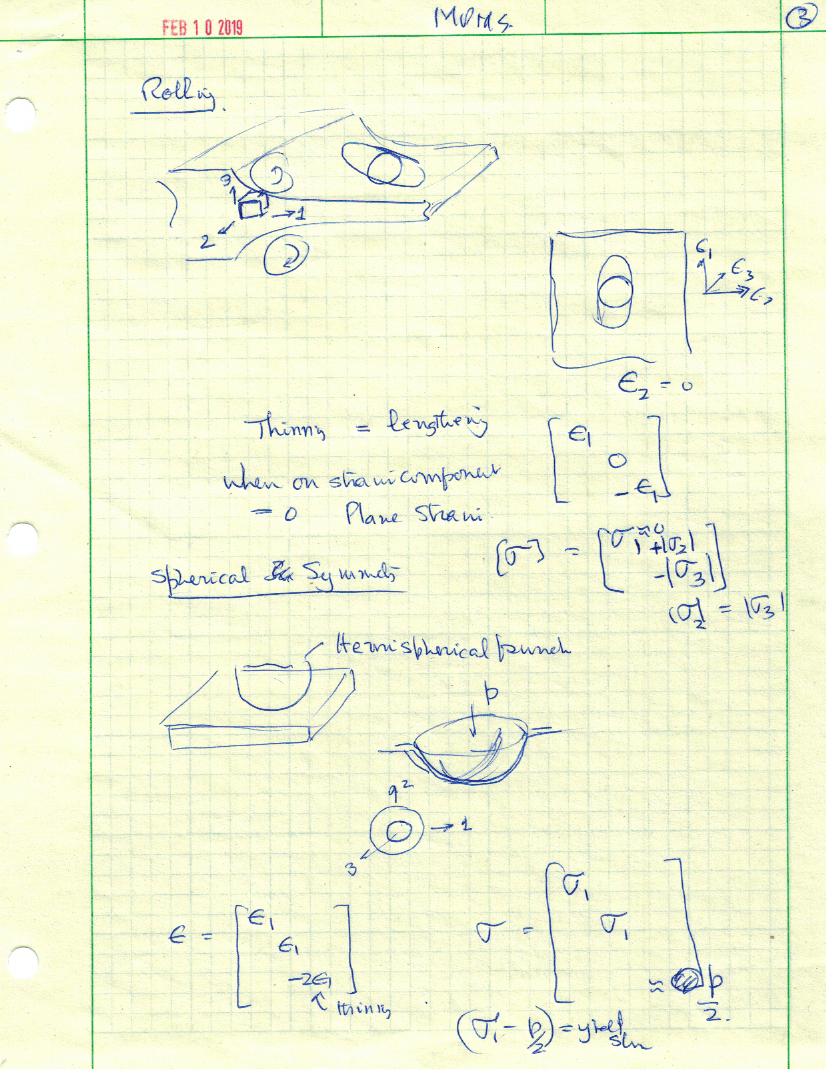 FEB 10 2019
3
Rolling.
3
1
2
ϵ1
ϵ3
ϵ2
ϵ2 = 0
Thinning = lengthening
when on strain component
= 0 Plane Strain.
[ϵ1
0
-ϵ1]
[σ] = [σ1 ≈ 0
+|σ2|
-|σ3|]
|σ2| = |σ3|
Spherical Symmetry
Hemispherical punch
p
2
1
3
ϵ = [ϵ1
ϵ1
-2ϵ1]
↑ thinning
σ = [σ1
σ1
≈ p/2]
(σ1 - p/2) = yield